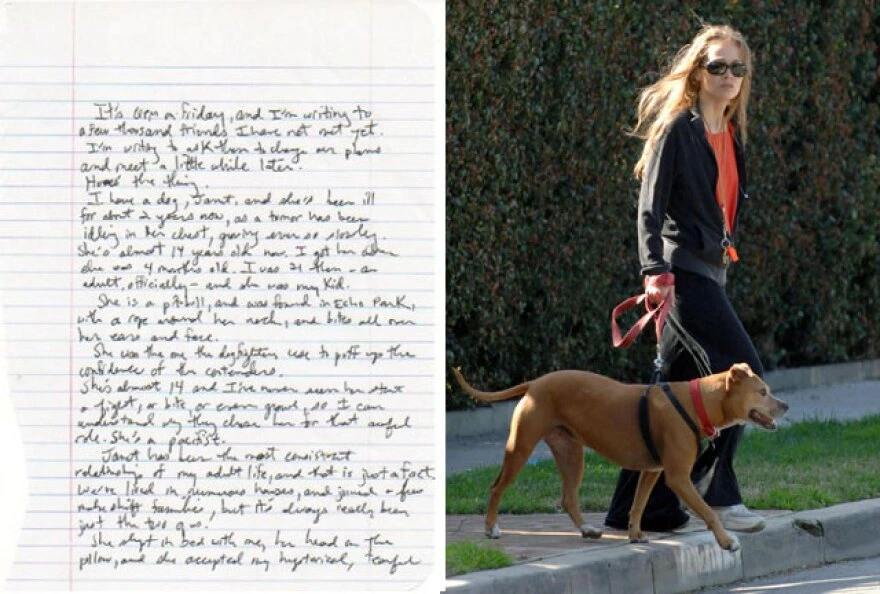 It's 6pm on Friday, and I'm writing to
a few thousand friends I have not met yet.
I'm writing to ask them to change our plans
and meet a little while later.
Here's the thing.
I have a dog, Janet, and she's been ill
for about 2 years now, as a tumor has been
idling in her chest, growing ever so slowly.
She's almost 14 years old now. I got her when
she was 4 months old. I was 21 then – an
adult, officially – and she was my kid.
She is a pitbull, and was found in Echo Park,
with a rope around her neck, and bites all over
her ears and face.
She was the one the dogfighters use to puff up the
confidence of the contenders.
She's almost 14 and I've never seen her start
a fight, or bite, or even growl, so I can
understand why they chose her for that awful
role. She's a pacifist.
Janet has been the most consistent
relationship of my adult life, and that is just a fact.
We've lived in numerous houses, and joined a few
makeshift families, but it's always really been
just the two of us.
She slept in bed with me, her head on the
pillow, and she accepted my hysterical, tearful